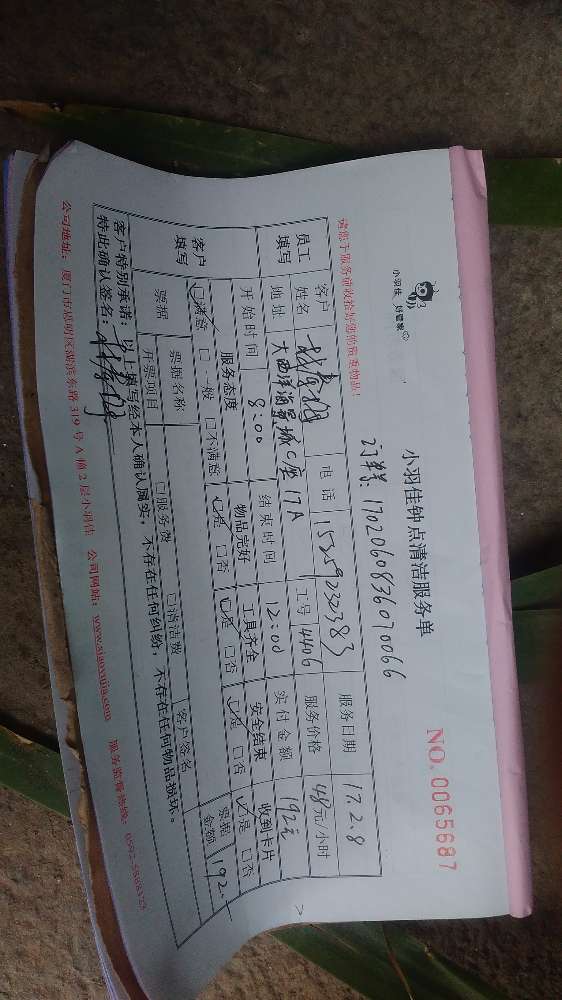 小羽佳 好管家
小羽佳钟点清洁服务单
NO. 0065687
订单: 1702060836070066
请您于服务前收拾好您的贵重物品!
员工填写 客户姓名 电话 15359232383 服务日期 17.2.8
地址 大西洋海景城C座17A 工号 4406 服务价格 48元/小时
开始时间 8:00 结束时间 12:00 实付金额 192元
客户填写 服务态度 物品完好 工具齐全 安全结束 收到卡片
☑满意 □一般 □不满意 ☑是 □否 ☑是 □否 ☑是 □否 ☑是 □否
票据 票据名称 客户签名 票据金额 192.
开票项目 □服务费 □清洁费
客户特别承诺:以上填写经本人确认属实,不存在任何纠纷,不存在任何物品损坏。
特此确认签名:
公司地址:厦门市思明区湖滨东路319号A幢2层小羽佳 公司网站:www.xiaoyujia.com 服务监督热线: